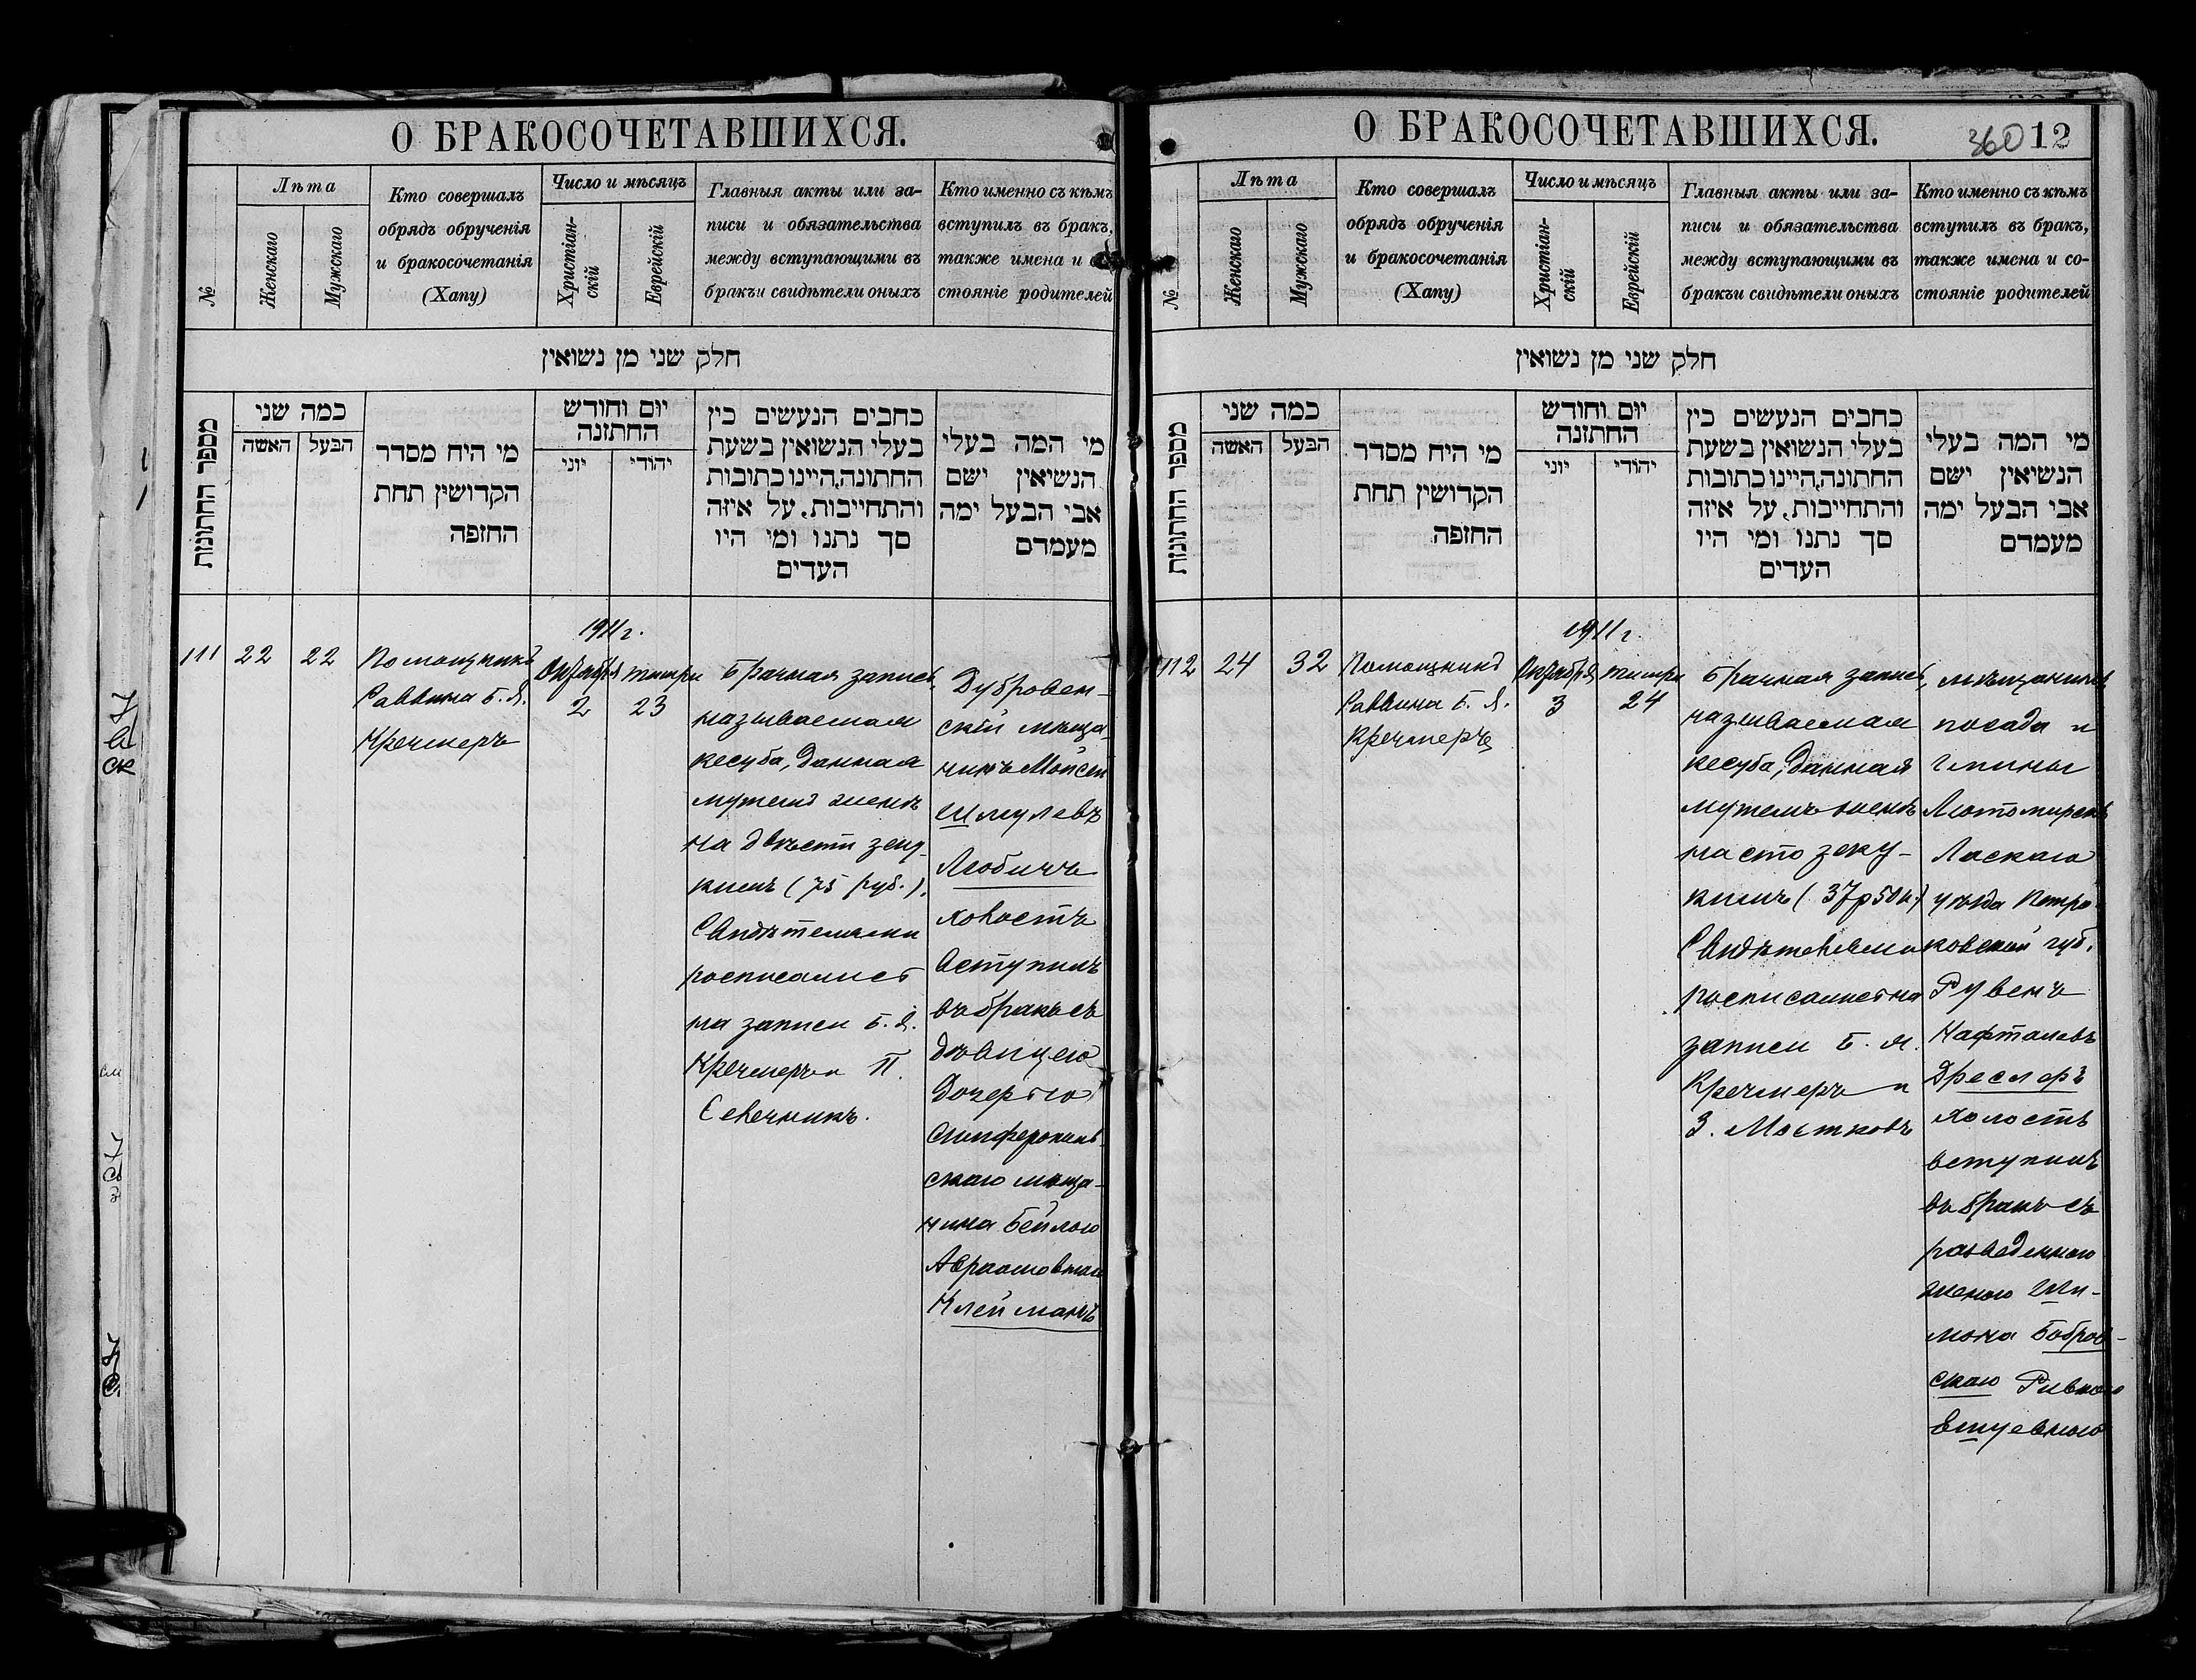 О БРАКОСОЧЕТАВШИХСЯ.
№
Лѣта
Женскаго
Мужскаго
Кто совершалъ
обрядъ обрученія
и бракосочетанія
(Хапу)
Число и мѣсяцъ
Христіан-
скій
Еврейскій
Главныя акты или за-
писи и обязательства
между вступающими въ
бракъи свидѣтели оныхъ
Кто именно съ кѣмъ
вступилъ въ бракъ,
также имена и
стояніе родителей
חלק שני מן נשואין
מספר החתונות
כמה שני
האשה
הבעל
מי היח מסדר
הקדושין תחת
החזפה
יום וחודש
החתונה
יוני
יהודי
כחבים הנעשים כין
בעלי הנשואין בשעת
החתונה,היינו כתובות
והתחייבות, על איזה
סך נתנו ומי היו
העדים
מי המה בעלי
הנשיאין ישם
אבי הבעל ימה
מעמדם
111
22
22
Помощникъ
Раввина Б. Я.
Кречмеръ
1911 г.
Октября
2
тишри
23
Брачная запись,
называемая
кесуба, данная
мужемъ женѣ
на двѣсти зеку-
кимъ (75 руб.).
Свидѣтелями
росписались
на записи Б. Я.
Кречмеръ и П.
Сѣвечникъ.
Дубровен-
скій мѣща-
нинъ Мойсей
Шмулевъ
Любичъ
холостъ
вступилъ
въ бракъ съ
дѣвицею
дочерью
Симферополь-
скаго мѣща-
нина Бейлою
Авраамовною
Клейманъ
О БРАКОСОЧЕТАВШИХСЯ.
360 12
№
Лѣта
Женскаго
Мужскаго
Кто совершалъ
обрядъ обрученія
и бракосочетанія
(Хапу)
Число и мѣсяцъ
Христіан-
скій
Еврейскій
Главныя акты или за-
писи и обязательства
между вступающими въ
бракъи свидѣтели оныхъ
Кто именно съ кѣмъ
вступилъ въ бракъ,
также имена и со-
стояніе родителей
חלק שני מן נשואין
מספר החתונות
כמה שני
האשה
הבעל
מי היח מסדר
הקדושין תחת
החזפה
יום וחודש
החתונה
יוני
יהודי
כחבים הנעשים כין
בעלי הנשואין בשעת
החתונה,היינו כתובות
והתחייבות, על איזה
סך נתנו ומי היו
העדים
מי המה בעלי
הנשיאין ישם
אבי הבעל ימה
מעמדם
112
24
32
Помощникъ
Раввина Б. Я.
Кречмеръ
1911 г.
Октября
3
тишри
24
Брачная запись,
называемая
кесуба, данная
мужемъ женѣ
на сто зеку-
кимъ (37р50к.)
Свидѣтелями
росписались на
записи Б. Я.
Кречмеръ и
З. Мостковъ
мѣщанинъ
посада и
гмины
Лютомирскъ
Ласкаго
уѣзда Петро-
ковской губ.
Рувенъ
Нафталевъ
Дреслеръ
холостъ
вступилъ
въ бракъ съ
разведенною
женою Ши-
мона Бобров-
скаго Ривкою